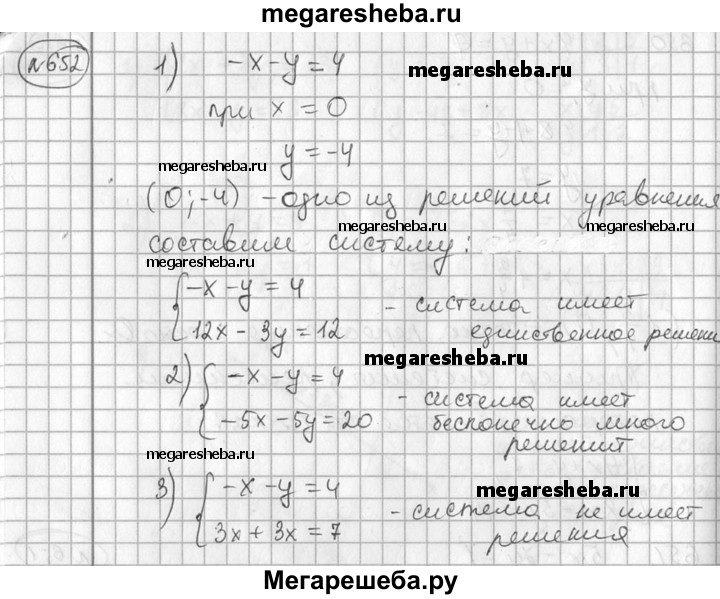 megaresheba.ru
№652
1) -x-y=4
megaresheba.ru
при x=0
y=-4
megaresheba.ru
(0;-4) - одно из решений уравнения
megaresheba.ru
составим систему:
megaresheba.ru
{-x-y=4
12x-3y=12
- система имеет
единственное решени
megaresheba.ru
2) {-x-y=4
-5x-5y=20
- система имеет
бесконечно много
решений
megaresheba.ru
3) {-x-y=4
3x+3x=7
megaresheba.ru
- система не имеет
решения
Мегарешеба.ру